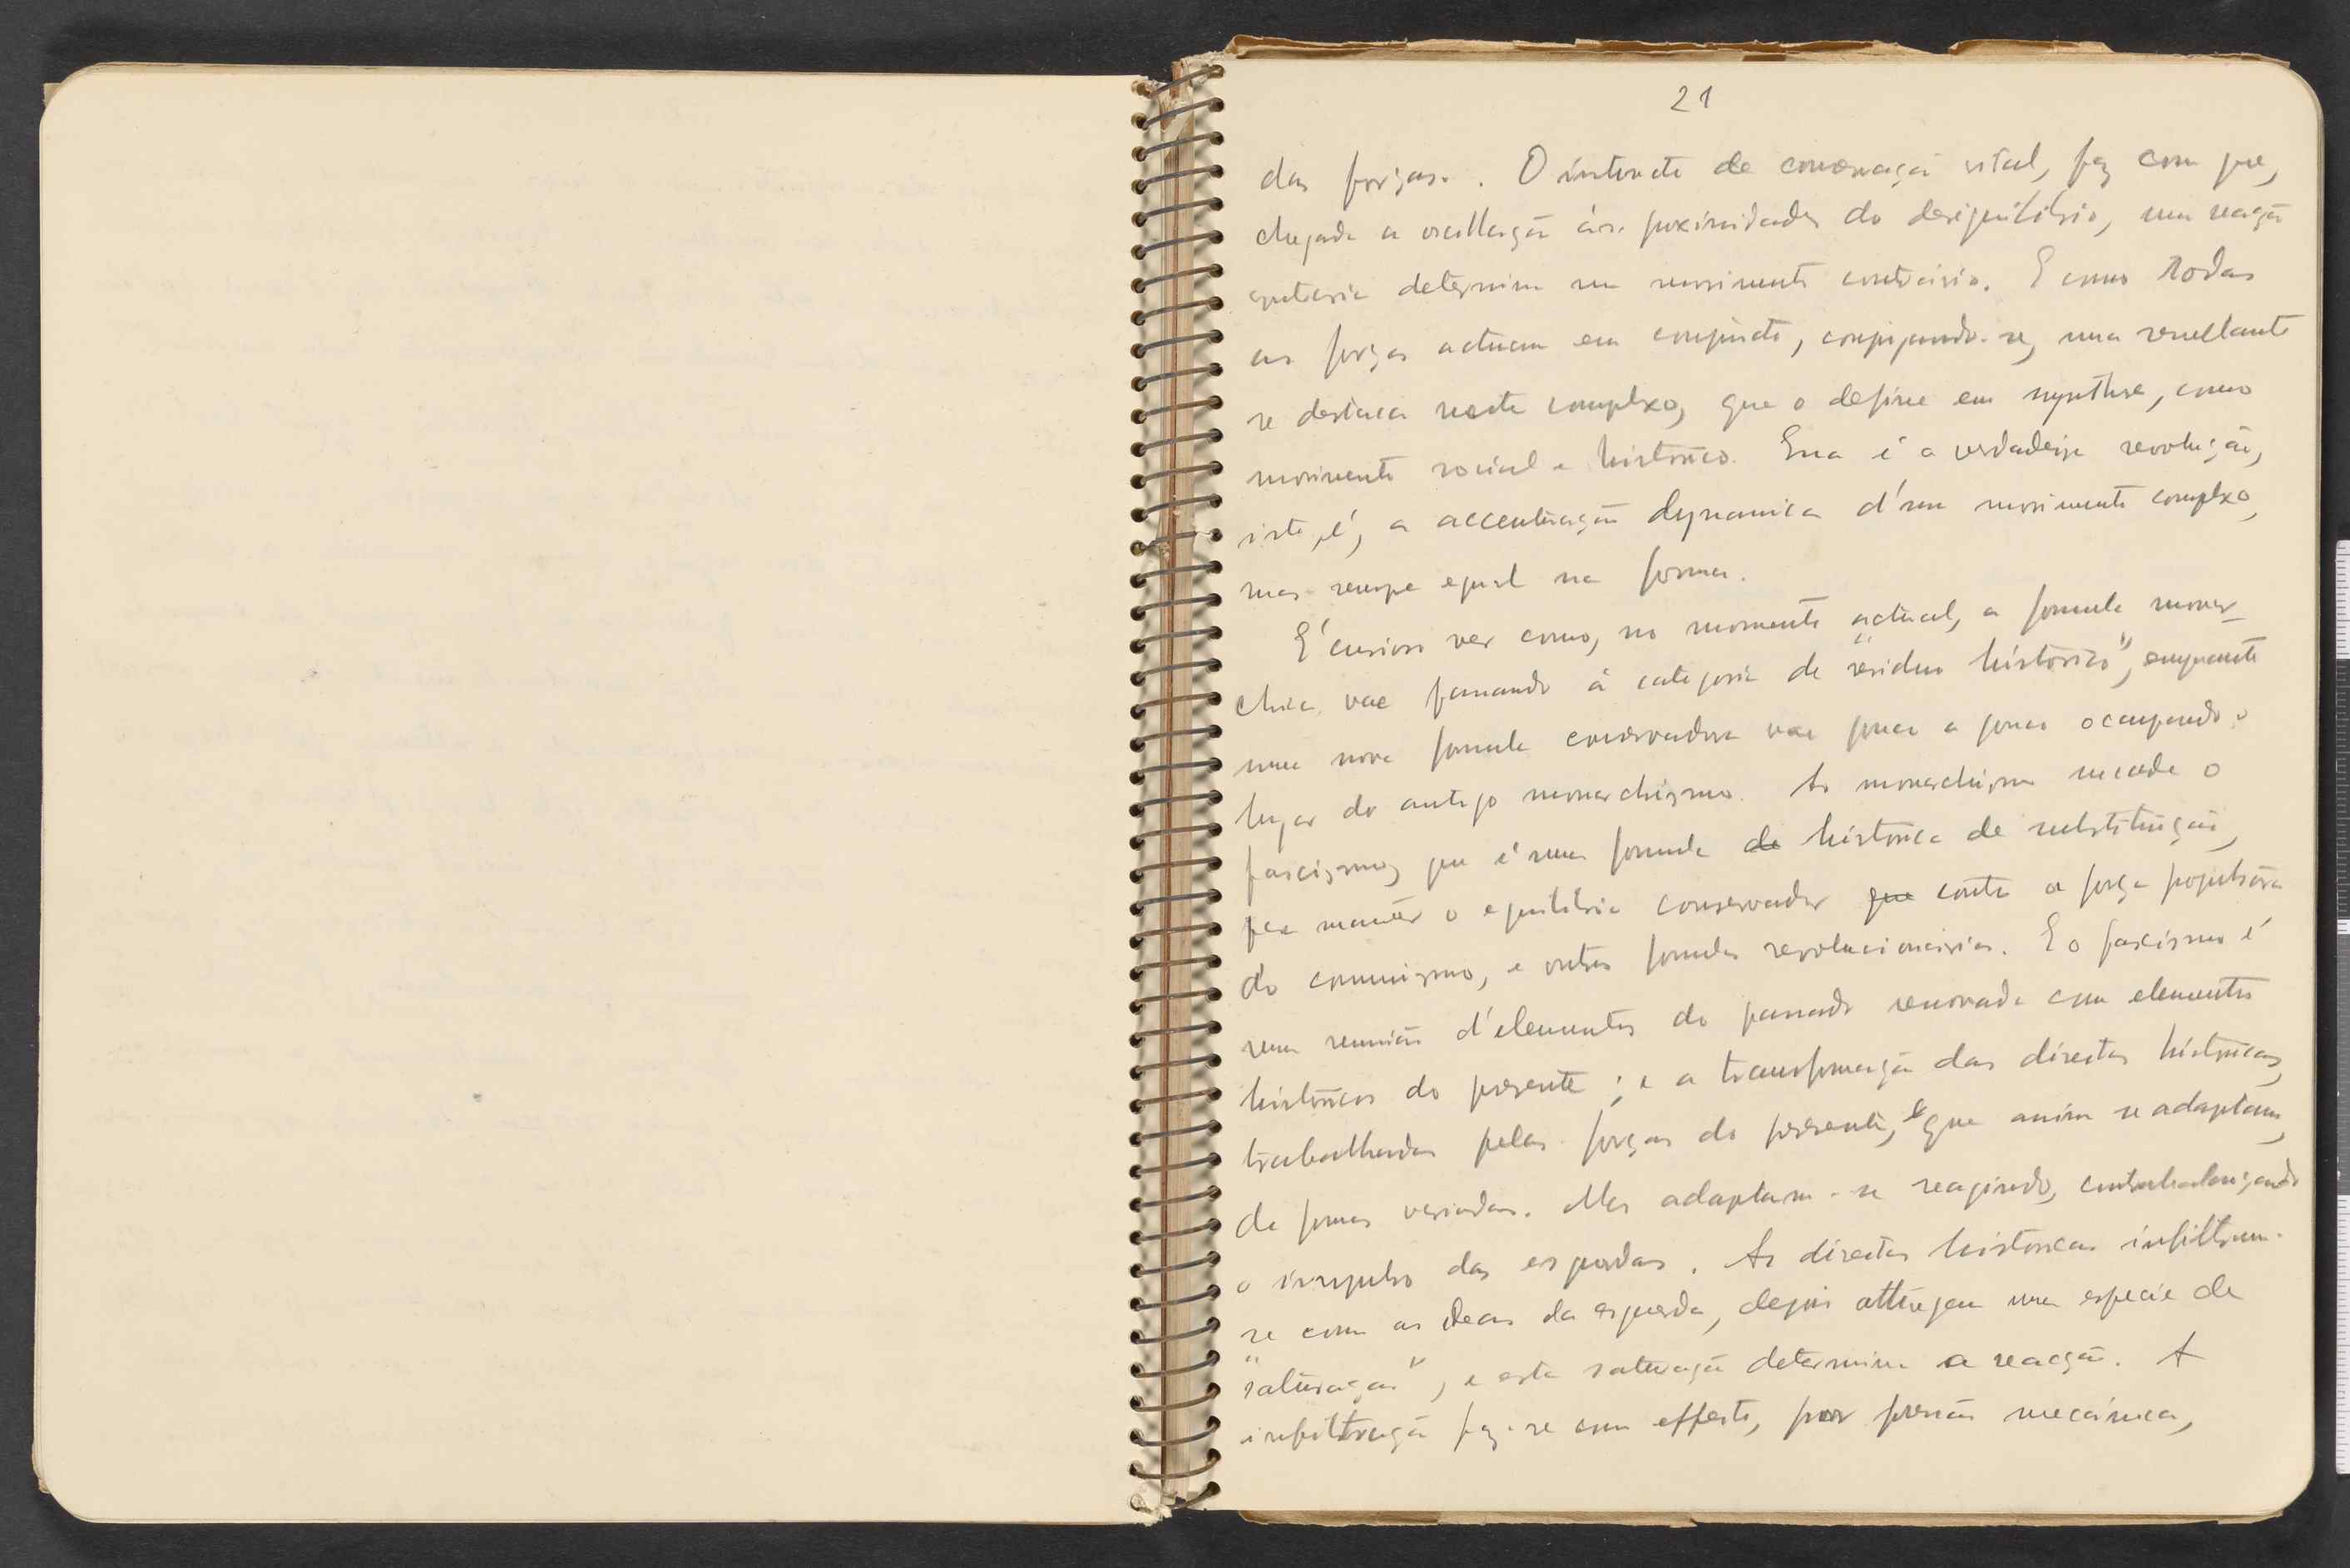 21
das forças. O instincto de conservação vital, faz com que,
chegada a oscillação ás proximidades do desiquilibrio, uma reacção
contraria determina um movimento contrário. E como todas
as forças actuam em conjuncto, conjugando-se, uma resultante
se destaca neste complexo, que o define em synthese, como
movimento social e historico. Essa é a verdadeira revolução,
isto é, a accentuação dynamica d'um movimento complexo,
mas sempre egual na forma.
E' curioso ver como, no momento actual, a formula monar-
chica vae passando á categoria de "residuo historico", emquanto
uma nova formula conservadora vae pouco a pouco occupando o
lugar do antigo monarchismo. Ao monarchismo succede o
fascismo, que é uma formula de historica de substituição,
para manter o equilibrio conservador que contra a força propulsora
do communismo, e outras formulas revolucionarias. E o fascismo é
uma reunião d'elementos do passado renovada com elementos
historicos do presente; é a transformação das direitas historicas,
trabalhadas pelas forças do presente, e que assim se adaptam,
de formas variadas. Mas adaptam-se reagindo, contrabalançando
o impulso das esquerdas. As direitas historicas infiltram-
se com as ideas da esquerda, depois attingem uma especie de
"saturação", e esta saturação determina a reacção. A
infiltração faz-se com effeito, por pressão mecánica,